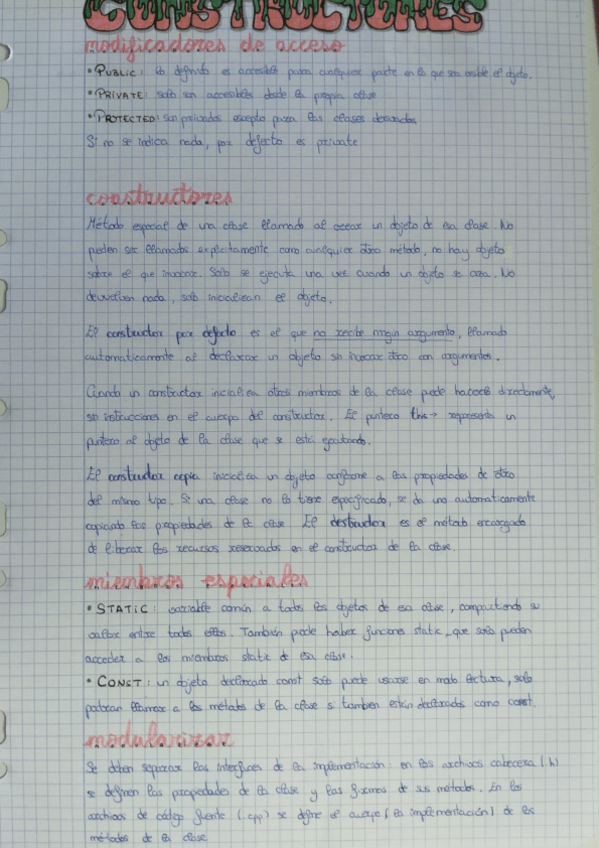 CONSTRUCTORES
modificadores de acceso
• PUBLIC: lo definido es accesible para cualquier parte en la que sea visible el objeto.
• PRIVATE: solo son accesibles desde la propia clase
• PROTECTED: son privados excepto para las clases derivadas
Si no se indica nada, por defecto es private
constructores
Método especial de una clase llamado al crear un objeto de esa clase. No
pueden ser llamados explicitamente como cualquier otro método, no hay objeto
sobre el que invocar. Solo se ejecuta una vez cuando un objeto se crea. No
devuelven nada, solo inicializan el objeto.
El constructor por defecto es el que no recibe ningún argumento, llamado
automaticamente al declarar un objeto sin invocar otro con argumentos.
Cuando un constructor inicializa otros miembros de la clase puede hacerlo directamente,
sin instrucciones en el cuerpo del constructor. El puntero this→ representa un
puntero al objeto de la clase que se está ejecutando.
El constructor copia inicializa un objeto conforme a las propiedades de otro
del mismo tipo. Si una clase no lo tiene especificado, se da uno automaticamente
copiando las propiedades de la clase El destructor es el método encargado
de liberar los recursos reservados en el constructor de la clase.
miembros especiales
• STATIC: variable común a todos los objetos de esa clase, compartiendo su
valor entre todos ellos. También puede haber funciones static, que solo pueden
acceder a los miembros static de esa clase.
• CONST: un objeto declarado const solo puede usarse en modo lectura, solo
podran llamar a los métodos de la clase si tambien están declarados como const.
modularizar
Se deben separar las interfaces de la implementación: en los archivos cabecera (.h)
se definen las propiedades de la clase y las firmas de sus métodos. En los
archivos de código fuente (.cpp) se define el cuerpo (la implementación) de los
métodos de la clase